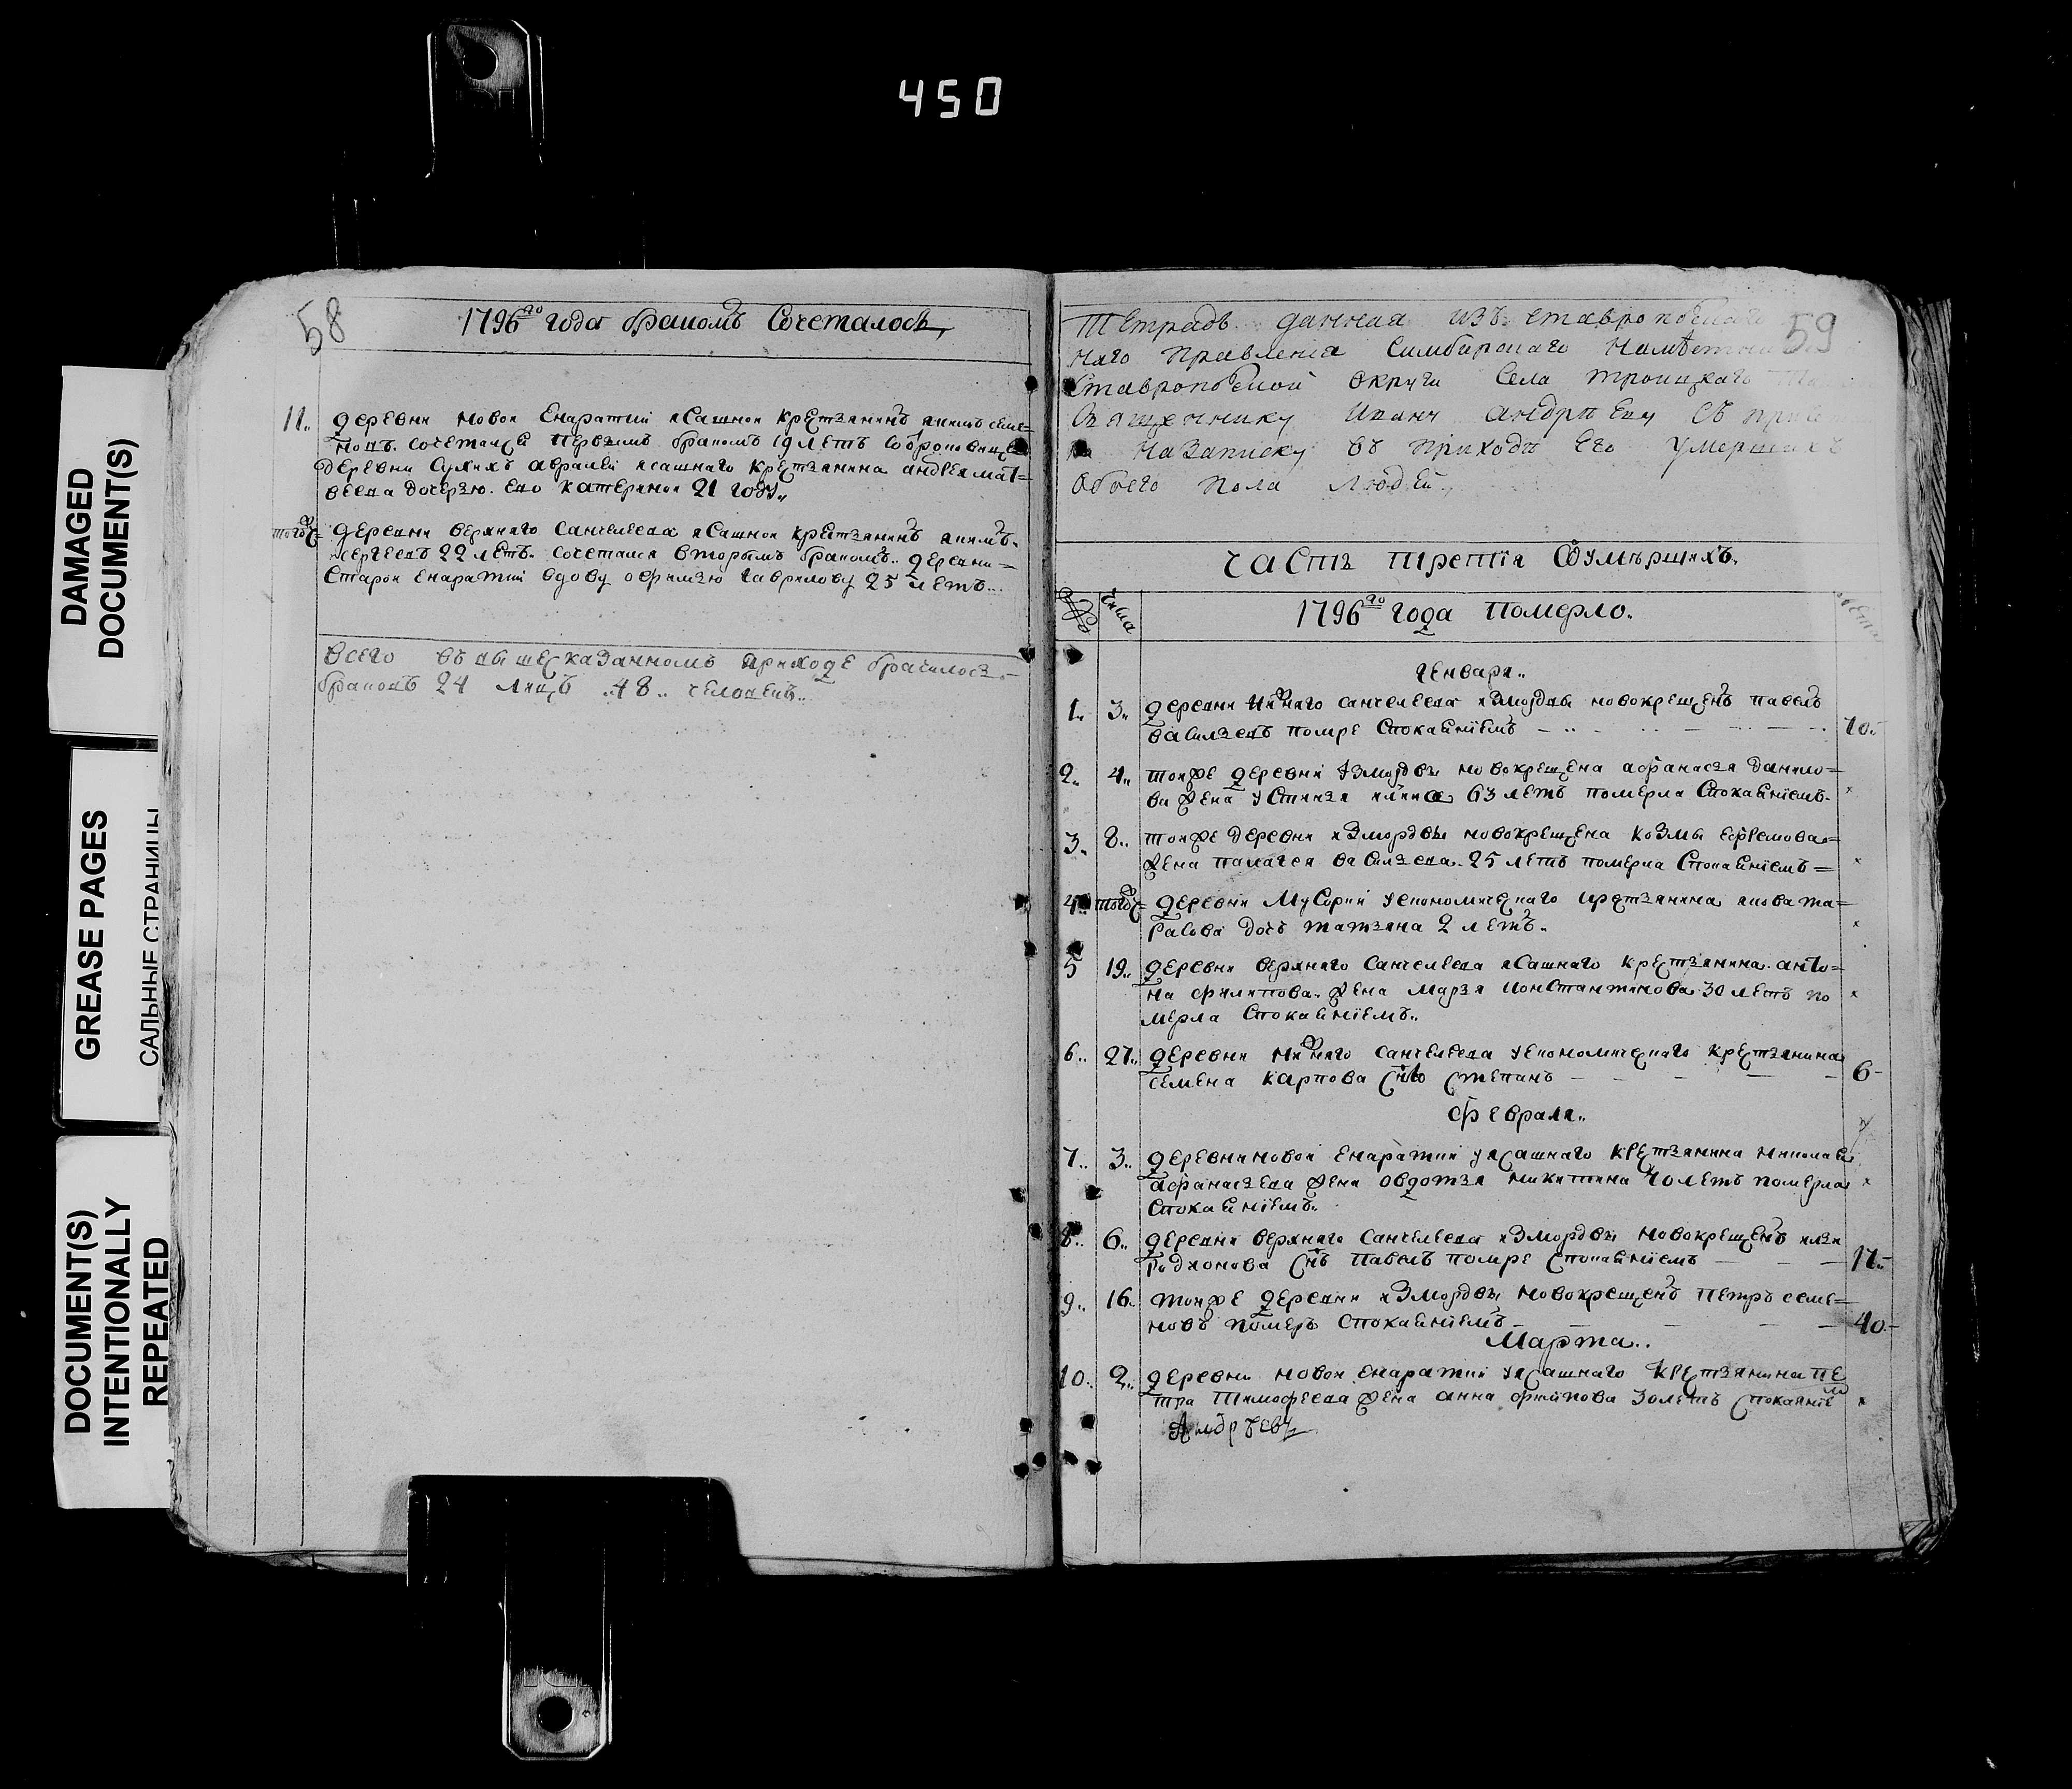 450
DAMAGED
DOCUMENT(S)
GREASE PAGES
САЛЬНЫЕ СТРАНИЦЫ
DOCUMENT(S)
INTENTIONALLY
REPEATED
58
1796го года бракомъ Сочеталось,
11. деревни новой Енаратки ясашной крестьянинъ якимъ семе=
новъ. сочетался первымъ бракомъ 19 летъ
деревни ясашнаго крестьянина андрея мат=
веева дочерью. ево катериной 21 году,,
тогоже деревни верхняго Санчелеева ясашной крестьянинъ якимъ.
сергеевъ 22 летъ. сочетался вторымъ бракомъ.. деревни=
Старой Енаратки вдову офимью гаврилову 25 летъ...
Всего въ вышесказанномъ приходе брачилось
браковъ 24 лицъ .. 48 .. человекъ..
59
Тетрадь данная изъ ставропольскаго
наго правления Симбирскаго
Ставропольской округи Села троицкаго
Священнику Ивану андрееву съ
На записку въ приходъ его умершихъ
обоего пола людей,
Часть третія Оумершихъ.
числа 1796го года померло. лета
генваря..
1. 3. деревни нижнаго санчелеева измордвы новокрещенъ павелъ
васильевъ помре Спокаениiемъ 70.
2. 4. тойже деревни измордвы новокрещена афанасья данило=
ва жена устинья 63 летъ померла Спокаениiемъ.
3. 8.. тойже деревни измордвы новокрещена козмы ефремова=
жена палагея васильева. 25 летъ померла Спокаениiемъ=
4. тогоже деревни Мусорки уекономичецкаго крестьянина якова та=
расова дочь татьяна 2 летъ.
5 19.. деревни верхняго Санчелеева ясашнаго крестьянина. анто=
на филипова. жена Марья константинова 30 летъ по
мерла Спокаениiемъ..
6.. 27. деревни нижняго санчелеева уекономичецкаго крестьянина
семена карпова снъ степанъ 6-
Февраля..
7.. 3. деревни новой Енаратки уясашнаго крестьянина николая
афанасьева жена овдотья никитина 40 летъ померла
Спокаениiемъ..
8.. 6.. деревни верхняго Санчелеева измордвы новокрещенъ илья
родионова снъ Павелъ помре спокаениiемъ 17..
9.. 16. тойже деревни измордвы новокрещенъ петръ семе=
новъ померъ спокаениiемъ 40.-
Марта..
10. 2. деревни новой енаратки уясашнаго крестьянина пе
тра тимофеева жена анна филипова 30 летъ спокаянiе